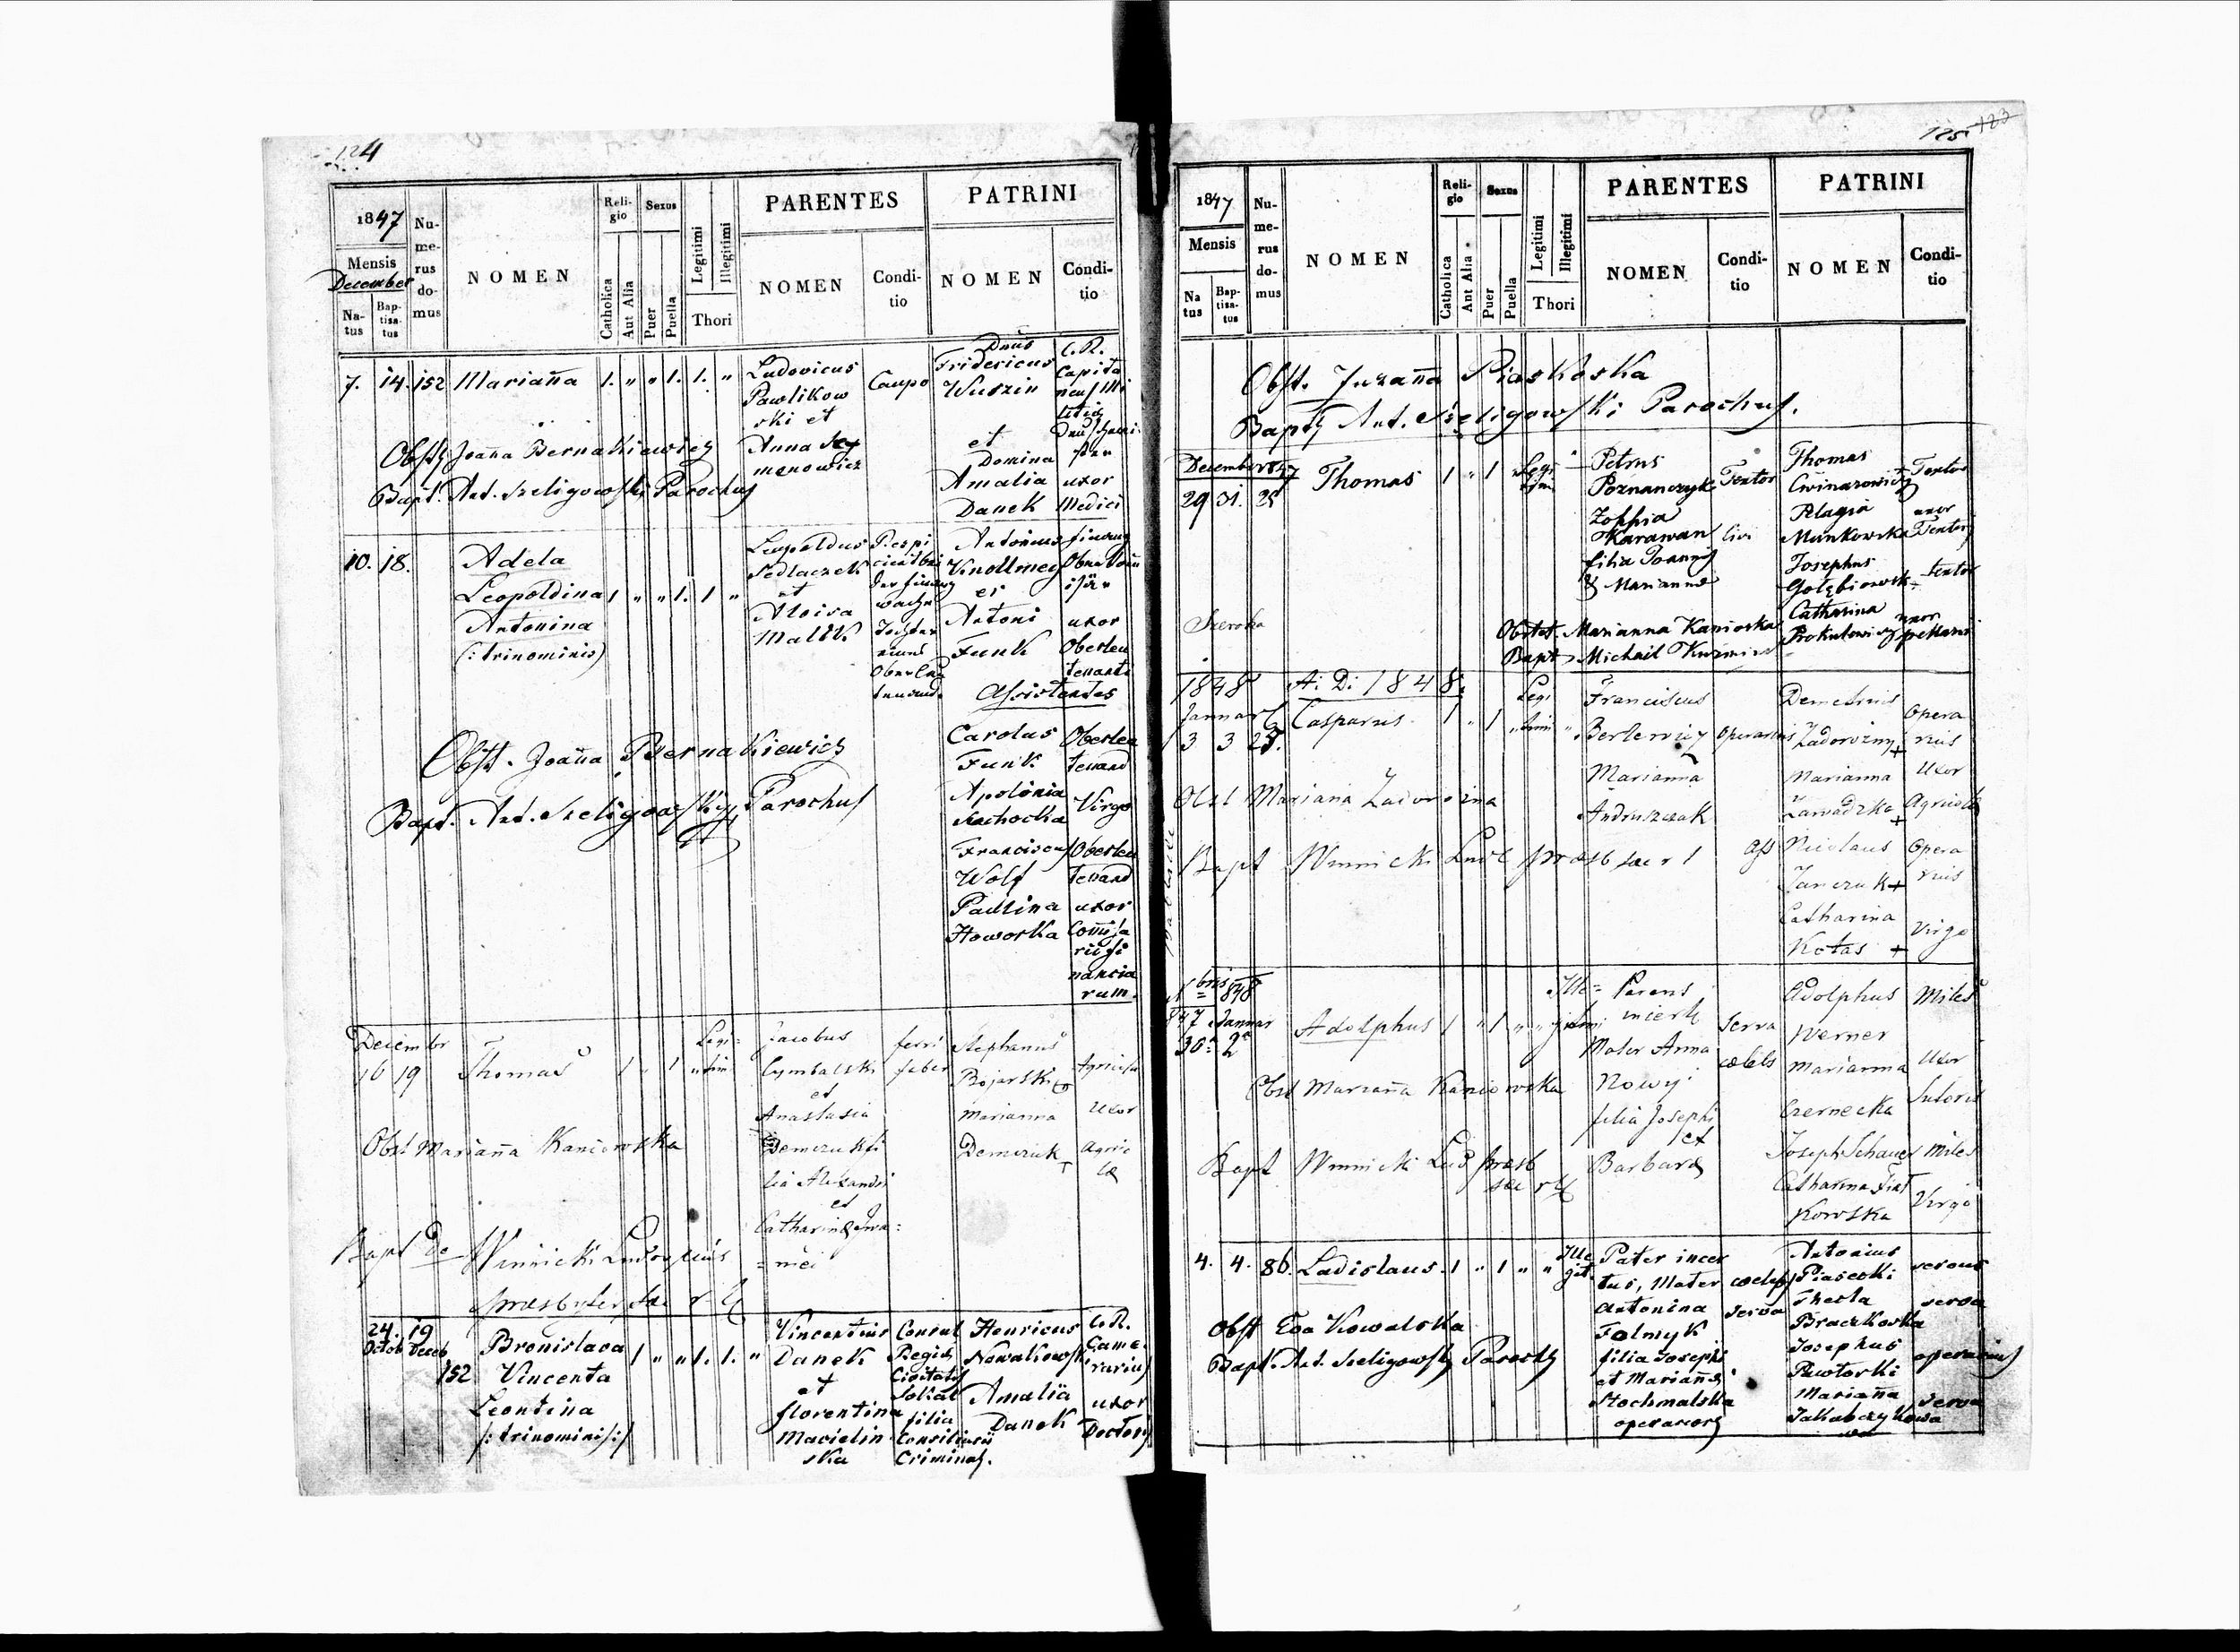 124
1847
Mensis
December
Na-
tus
Bap-
tisa-
tus
Nu-
me-
rus
do-
mus
NOMEN
Reli-
gio
Catholica
Aut Alia
Sexus
Puer
Puella
Legitimi
Illegitimi
Thori
PARENTES
NOMEN
Condi-
tio
PATRINI
NOMEN
Condi-
tio
7. 14. 152 Marianna 1. " " 1. 1. "
Ludovicus
Pawlikow
ski et
Anna Szy
manowicz
Caupo
Dnus
Fridericus
Wudzin
et
Domina
Amalia
Danek
C.R.
Capita
neus
uxor
Medici
Obst. Joanna Bernakiewicz
Bapt. Ant. Szeligowski Parochus
10. 18.
Adela
Leopoldina 1 " " 1. 1 "
Antonina
(: trinominis)
Leopoldus
Sedlaczek
et
Aloisa
Antonius
et
Antoni
Funk
uxor
Oberleu
tenanti
Assistentes
Carolus
Funk
Oberleu
tenand
Apolonia
Suchocka
Virgo
Franciscus
Wolf
Oberleu
tenand
Paulina
Howorka
uxor
Commissa
rii fi
nancia
rum.
Obst. Joanna Bernakiewicz
Bapt. Ant. Szeligowski Parochus
Decembr
16 19 Thomas 1 " 1 " Legi=
tim
Jacobus
Cymbalski
et
Anastasia
Demczuk fi
lia Alexandri
et
Catharinae Iwa=
= niei
ferri
faber
Stephanus
Bojarski
Marianna
Demczuk +
Agricola
Uxor
Agric
lae
Obst Marianna Kaniowska
Bapt Winnicki Ludovicus
presbyter
24. 19
Octob Deceb
152
Bronislava 1 " " 1. 1. "
Vincenta
Leontina
/: trinominis :/
Vincentius
Danek
et
florentina
Macielin
ska
Consul
Regiae
Civitatis
Sokal
filia
Consiliarii
Criminal.
Henricus
Nowakowski
Amalia
Danek
C.R.
Came
rarius
uxor
Doctoris
125 123
1847
Mensis
Na
tus
Bap-
tisa-
tus
Nu-
me-
rus
do-
mus
NOMEN
Reli-
gio
Catholica
Aut Alia
Sexus
Puer
Puella
Legitimi
Illegitimi
Thori
PARENTES
NOMEN
Condi-
tio
PATRINI
NOMEN
Condi-
tio
Obst. Zuzanna Piaskoska
Bapt Ant. Szeligowski Parochus.
December 1847
29 31. 25 Thomas 1 " 1 " Legi
tim
Petrus
Poznanczyk
Zophia
Karawan
filia Joannis
& Marianna
Textor
Thomas
Cwinarowicz
Pelagia
Munkowska
Josephus
Gołębiowski
Catharina
Prokutowicz
Textor
uxor
Textoris
textor
uxor
Szeroka
Obstet. Marianna Kanioska
Bapt Michail Kuzmin
1848 A: D: 1848.
Januar
3 3 27. Casparus 1 " 1 " Legi
timi "
Franciscus
Berlewicz
Marianna
Andruszczak
operarius
Demetrius
Zadorożny +
Marianna
Zawadzka +
Nicolaus
Janczuk +
Catharina
Kotas +
Opera
rius
Uxor
Agricola
Opera
rius
Virgo
Obst Mariana Zadorozna
Bapt Winnicki Lud presb
Nbris 1848
847 Januar
30a 2a Adolphus 1 " 1 " " Ille=
gitimi
Parens
incert
Mater Anna
Nowy
filia Josephi
et
Barbara
Serva
caelebs
Adolphus
Werner
Marianna
Czernecka
Joseph Schauer
Catharina Fiał
Kowska
Miles
Uxor
Sutoris
Miles
Virgo
Obst Marianna Kaniowska
Bapt Winnicki Lud presb
4. 4. 86. Ladislaus. 1 " 1 " " Ille
git
Pater incer
tus, Mater
Antonina
Folmyk
filia Josephi
et Marianna
Stochmalska
operarior
caelebs
serva
Antonius
Piasecki
Thecla
Braczkoska
Josephus
Pawtorki
Marianna
Jakubczykowa
servus
serva
operarius
serva
Obst Eva Kowalska
Bapt. Ant. Szeligowski Parochus